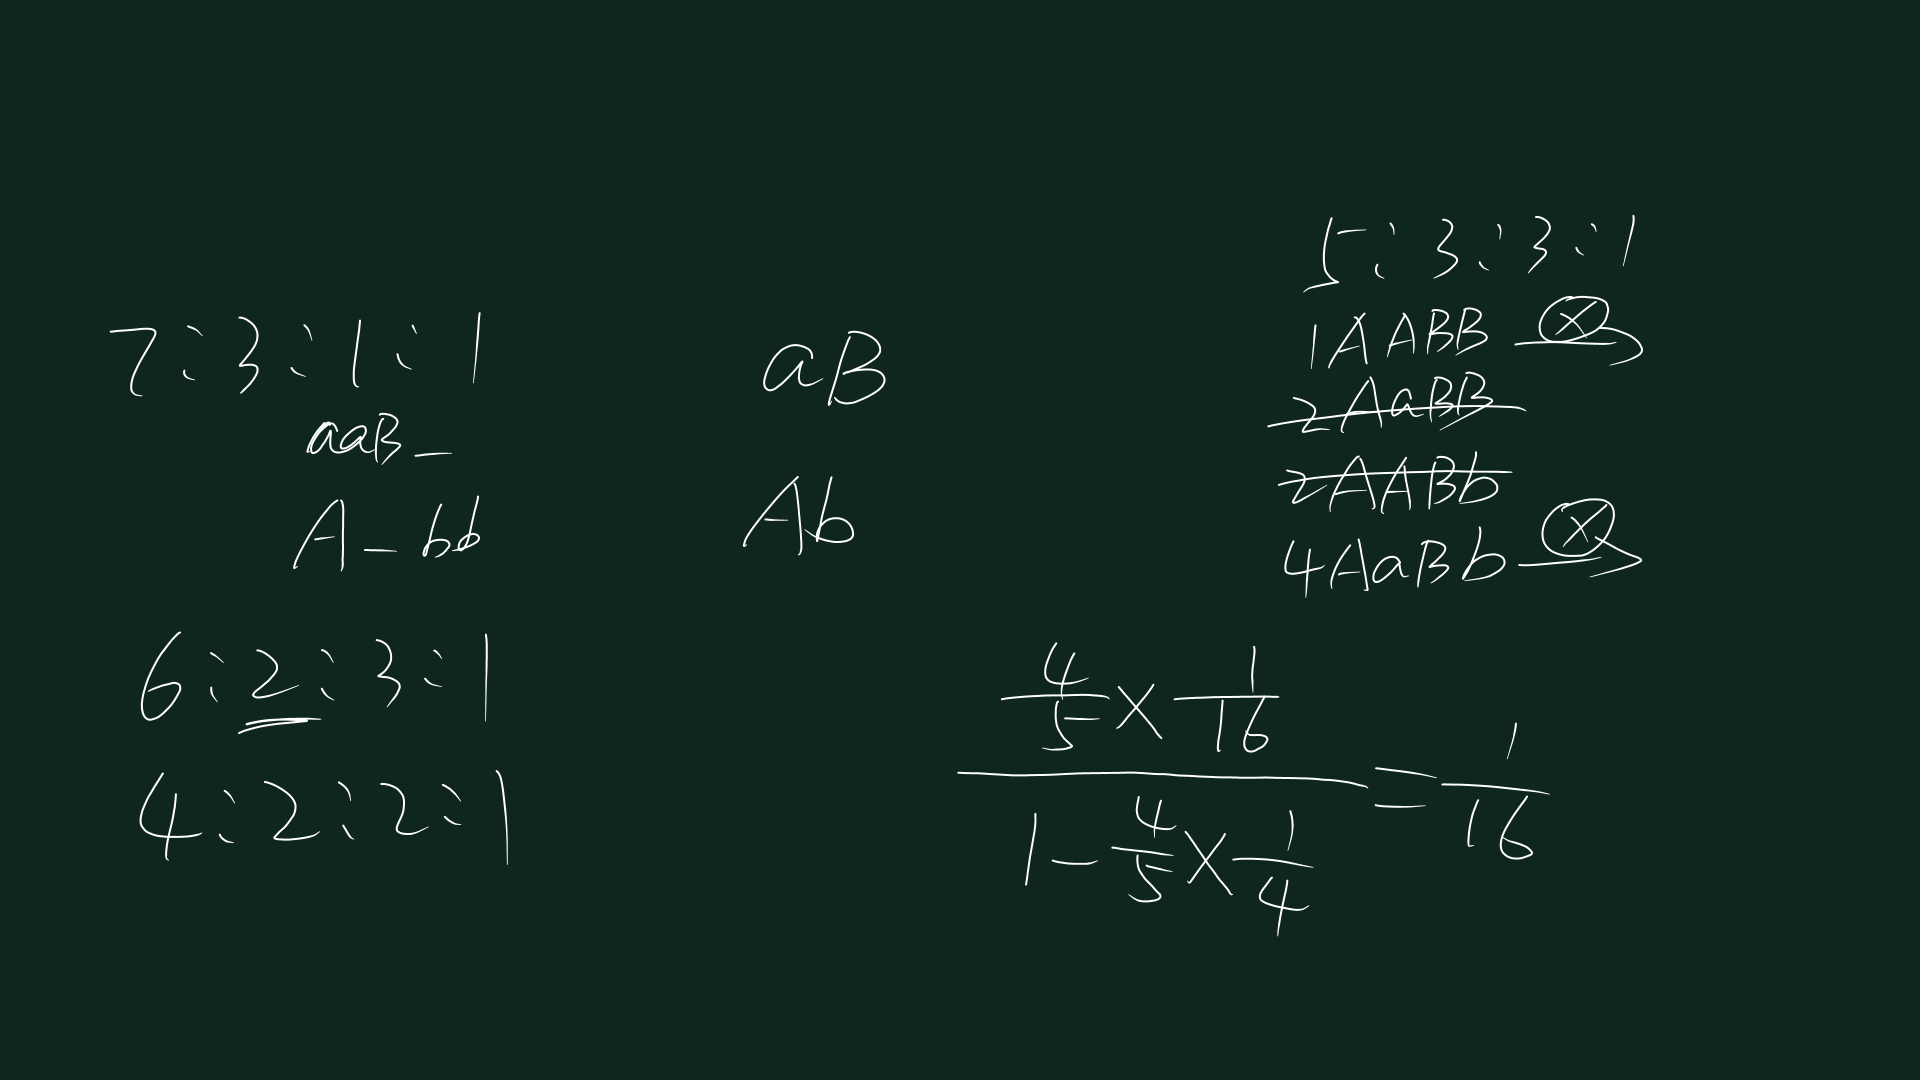 7:3:1:1
aaB_
A_bb
6:2:3:1
4:2:2:1
aB
Ab
5:3:3:1
1AABB ⊗→
2AaBB
2AABb
4AaBb ⊗→
4/5 × 1/16
1 - 4/5 × 1/4
= 1/16